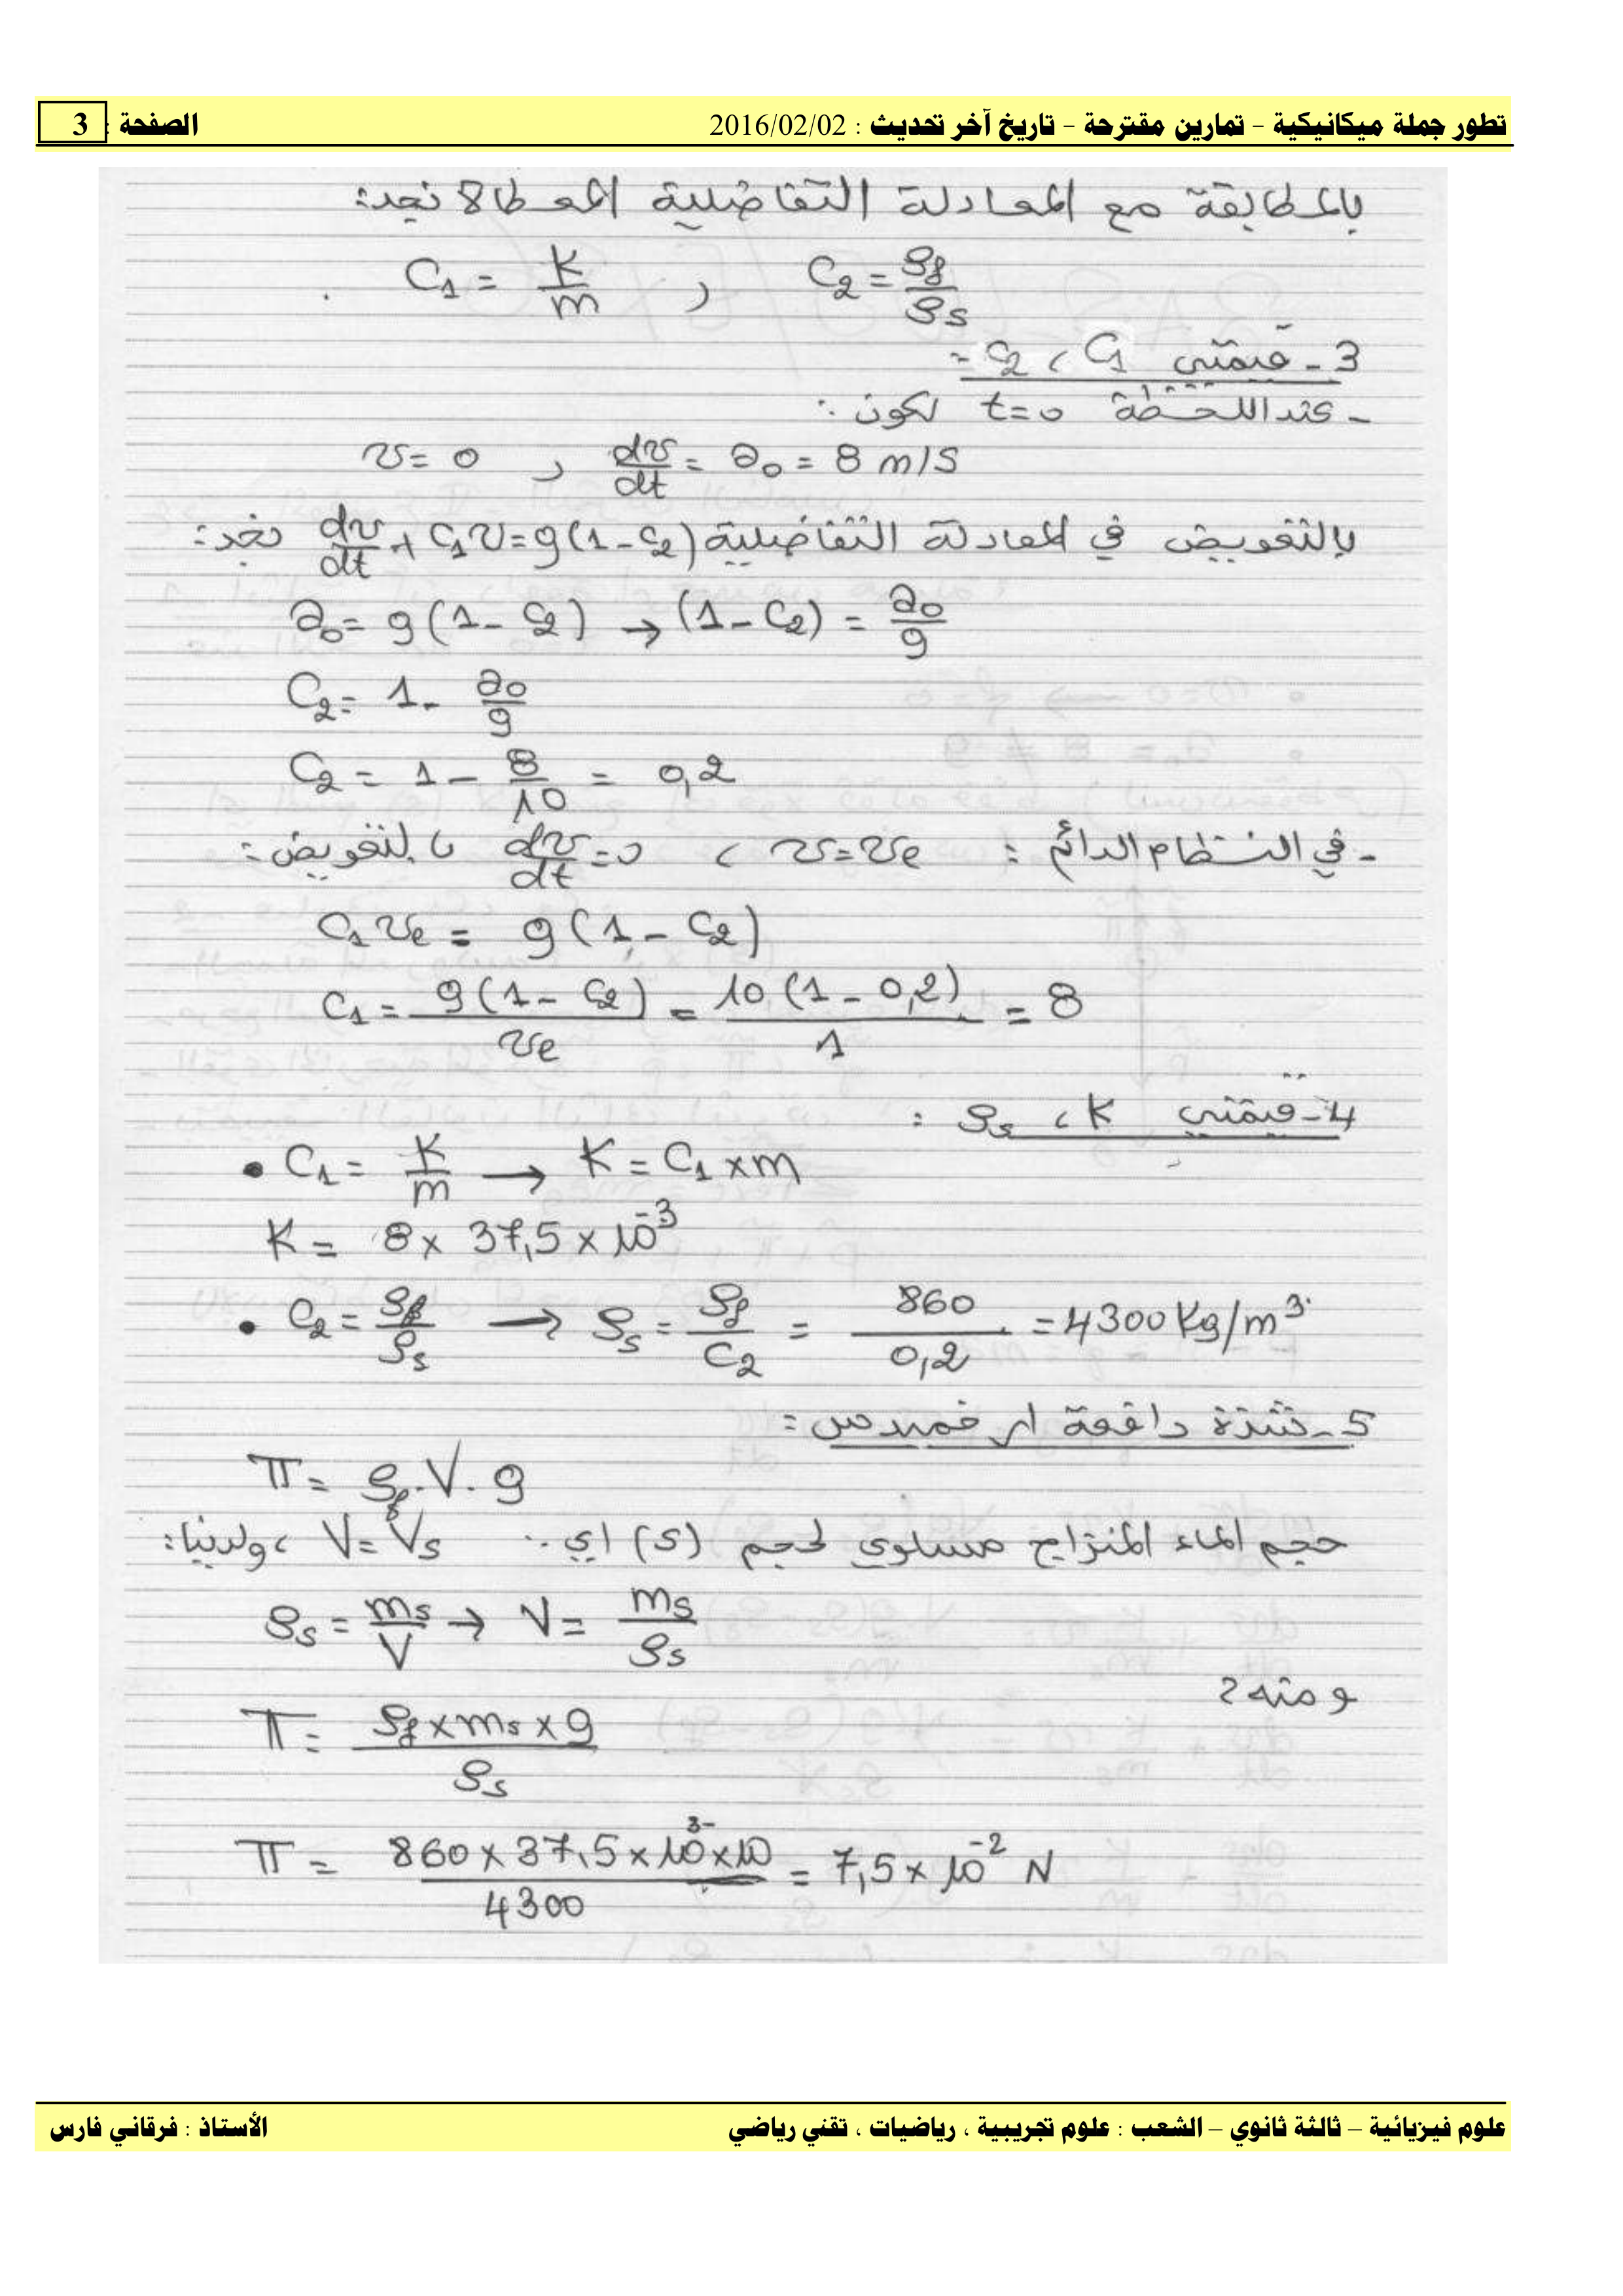 تطور جملة ميكانيكية - تمارين مقترحة - تاريخ آخر تحديث : 2016/02/02 الصفحة : 3
بالمطابقة مع المعادلة التفاضلية المعطاة نجد:
C₁ = K/m , C₂ = ρf/ρs .
3 - قيمتي C₁ ، C₂ :
- عند اللحظة t=0 لكون :
v = 0 , dv/dt = a₀ = 8 m/s
بالتعويض في المعادلة التفاضلية dv/dt + C₁v = g(1 - C₂) نجد:
a₀ = g(1 - C₂) → (1 - C₂) = a₀/g
C₂ = 1 - a₀/g
C₂ = 1 - 8/10 = 0,2
- في النظام الدائم : v = ve ، dv/dt = 0 بالتعويض :
C₁ve = g(1 - C₂)
C₁ = g(1 - C₂)/ve = 10(1 - 0,2)/1 = 8
4 - قيمتي K ، ρs :
• C₁ = K/m → K = C₁ × m
K = 8 × 37,5 × 10⁻³
• C₂ = ρf/ρs → ρs = ρf/C₂ = 860/0,2 = 4300 Kg/m³
5 - شدة دافعة ارخميدس :
π = ρf . V . g
حجم الماء المنزاح مساوي لحجم (S) اي : V = Vs ، ولدينا :
ρs = ms/V → V = ms/ρs
و منه :
π = ρf × ms × g / ρs
π = 860 × 37,5 × 10³⁻ × 10 / 4300 = 7,5 × 10⁻² N
علوم فيزيائية – ثالثة ثانوي – الشعب : علوم تجريبية ، رياضيات ، تقني رياضي الأستاذ : فرقاني فارس